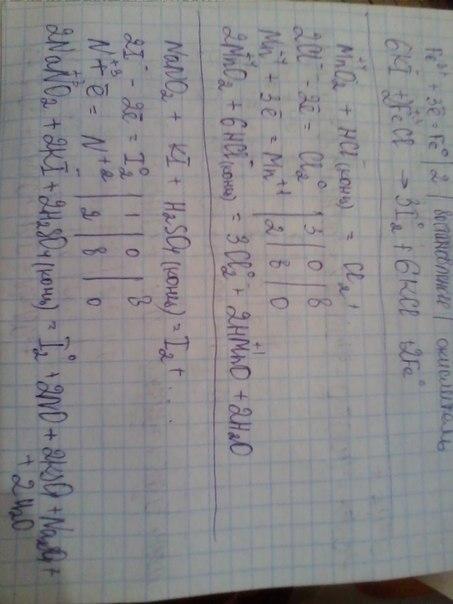 Fe³⁺ + 3ē = Fe⁰ | 2 | восстановление | окислитель
6KI + 2FeCl → 3I₂⁰ + 6KCl + 2Fe⁰
MnO₂ + HCl (конц) = Cl₂ +
2Cl⁻ - 2ē = Cl₂⁰ | 3 | 0 | в
Mn⁺⁴ + 3ē = Mn⁺¹ | 2 | в | 0
2MnO₂ + 6HCl (конц) = 3Cl₂⁰ + 2HMnO + 2H₂O
NaNO₂ + KI + H₂SO₄ (конц) = I₂ + ...
2I⁻ - 2ē = I₂⁰ | 1 | 0 | в
N⁺³ + ē = N⁺² | 2 | в | 0
2NaNO₂ + 2KI + 2H₂SO₄ (конц) = I₂⁰ + 2NO + 2KSO₄ + Na₂SO₄ +
+ 2H₂O